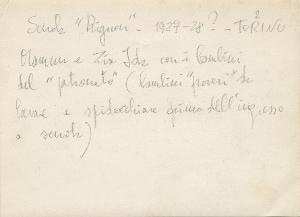 Scuola "Rignon" - 1927-28? - TORINO
Mamma e Zia Ida con i bambini
del "patronato" (bambini "poveri" da
lavare e spidocchiare prima dell'ingresso
a scuola)